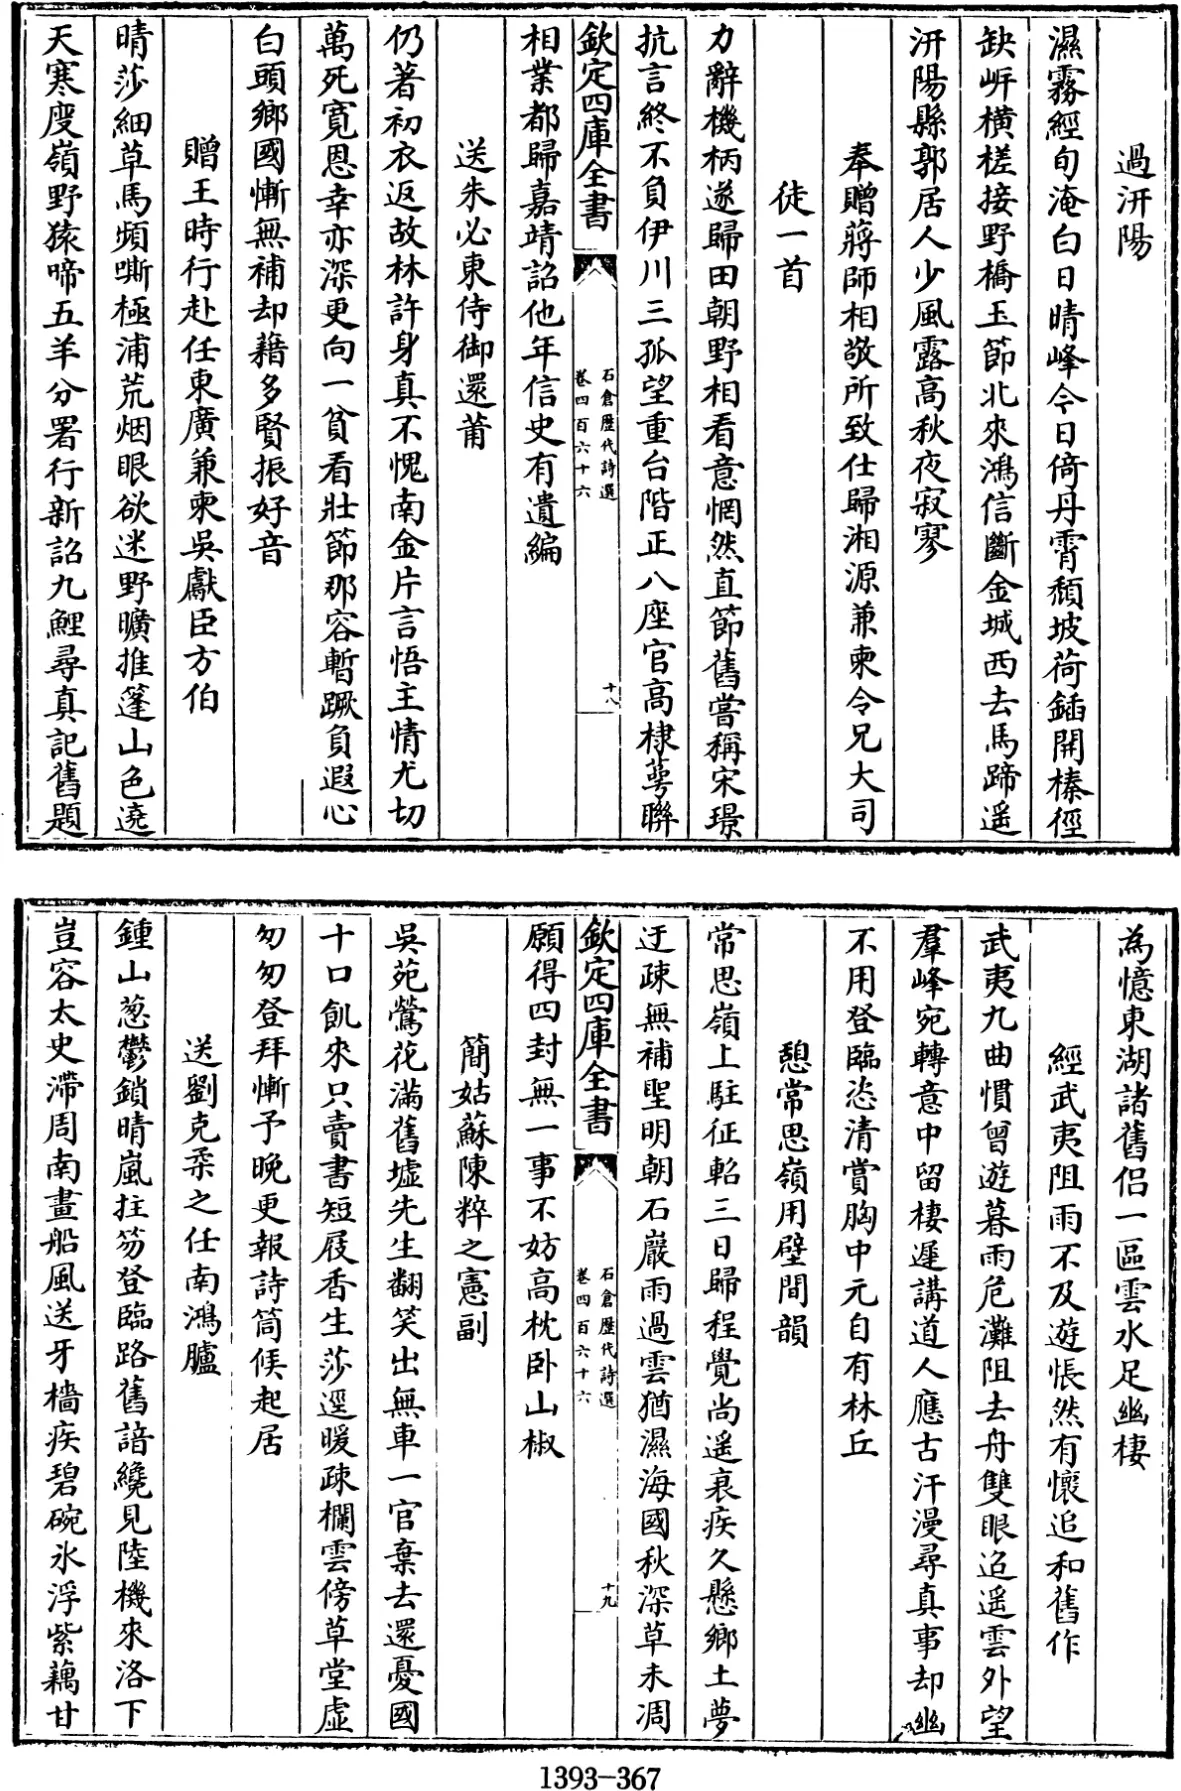 過汧陽
濕霧經旬淹白日晴峰今日倚丹霄頽坡荷鍤開榛徑
缺㟁横槎接野橋玉節北來鴻信斷金城西去馬蹄遥
汧陽縣郭居人少風露高秋夜寂寥
奉贈蔣師相敬所致仕歸湘源兼柬令兄大司
徒一首
力辭機柄遂歸田朝野相看意惘然直節舊嘗稱宋璟
抗言終不負伊川三孤望重台階正八座官高棣萼聯
欽定四庫全書
石倉歷代詩選
卷四百六十六
十八
相業都歸嘉靖詔他年信史有遺編
送朱必東侍御還莆
仍著初衣返故林許身真不愧南金片言悟主情尤切
萬死寛恩幸亦深更向一貧看壯節那容暫蹶負遐心
白頭鄉國慚無補却藉多賢振好音
贈王時行赴任東廣兼柬吳獻臣方伯
晴莎細草馬頻嘶極浦荒烟眼欲迷野曠推蓬山色遶
天寒度嶺野猿啼五羊分署行新詔九鯉尋真記舊題
為憶東湖諸舊侶一區雲水足幽棲
經武夷阻雨不及遊悵然有懷追和舊作
武夷九曲慣曾遊暮雨危灘阻去舟雙眼迢遥雲外望
羣峰宛轉意中留棲遲講道人應古汗漫尋真事却幽
不用登臨恣清賞胸中元自有林丘
憩常思嶺用壁間韻
常思嶺上駐征軺三日歸程覺尚遥衰疾久懸鄉土夢
迂疎無補聖明朝石巖雨過雲猶濕海國秋深草未凋
欽定四庫全書
石倉歷代詩選
卷四百六十六
十九
願得四封無一事不妨高枕卧山椒
簡姑蘇陳粹之憲副
吳苑鶯花滿舊墟先生翻笑出無車一官棄去還憂國
十口飢來只賣書短屐香生莎逕暖疎欄雲傍草堂虛
匆匆登拜慚予晚更報詩筒候起居
送劉克柔之任南鴻臚
鍾山葱鬱鎖晴嵐拄笏登臨路舊諳纔見陸機來洛下
豈容太史滯周南畫船風送牙檣疾碧碗氷浮紫藕甘
1393-367